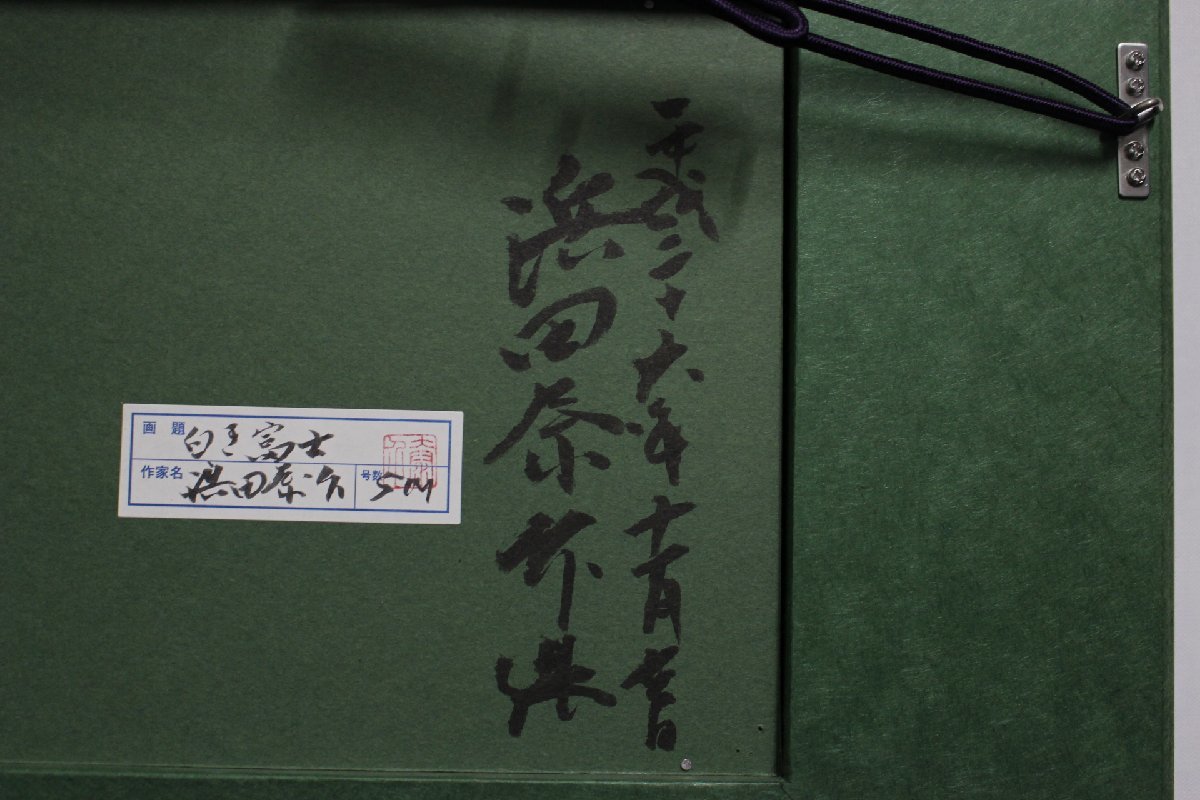 平成二十六年 吉日
浜田泰介
画題 白き富士
作家名 浜田泰介 号数 SM